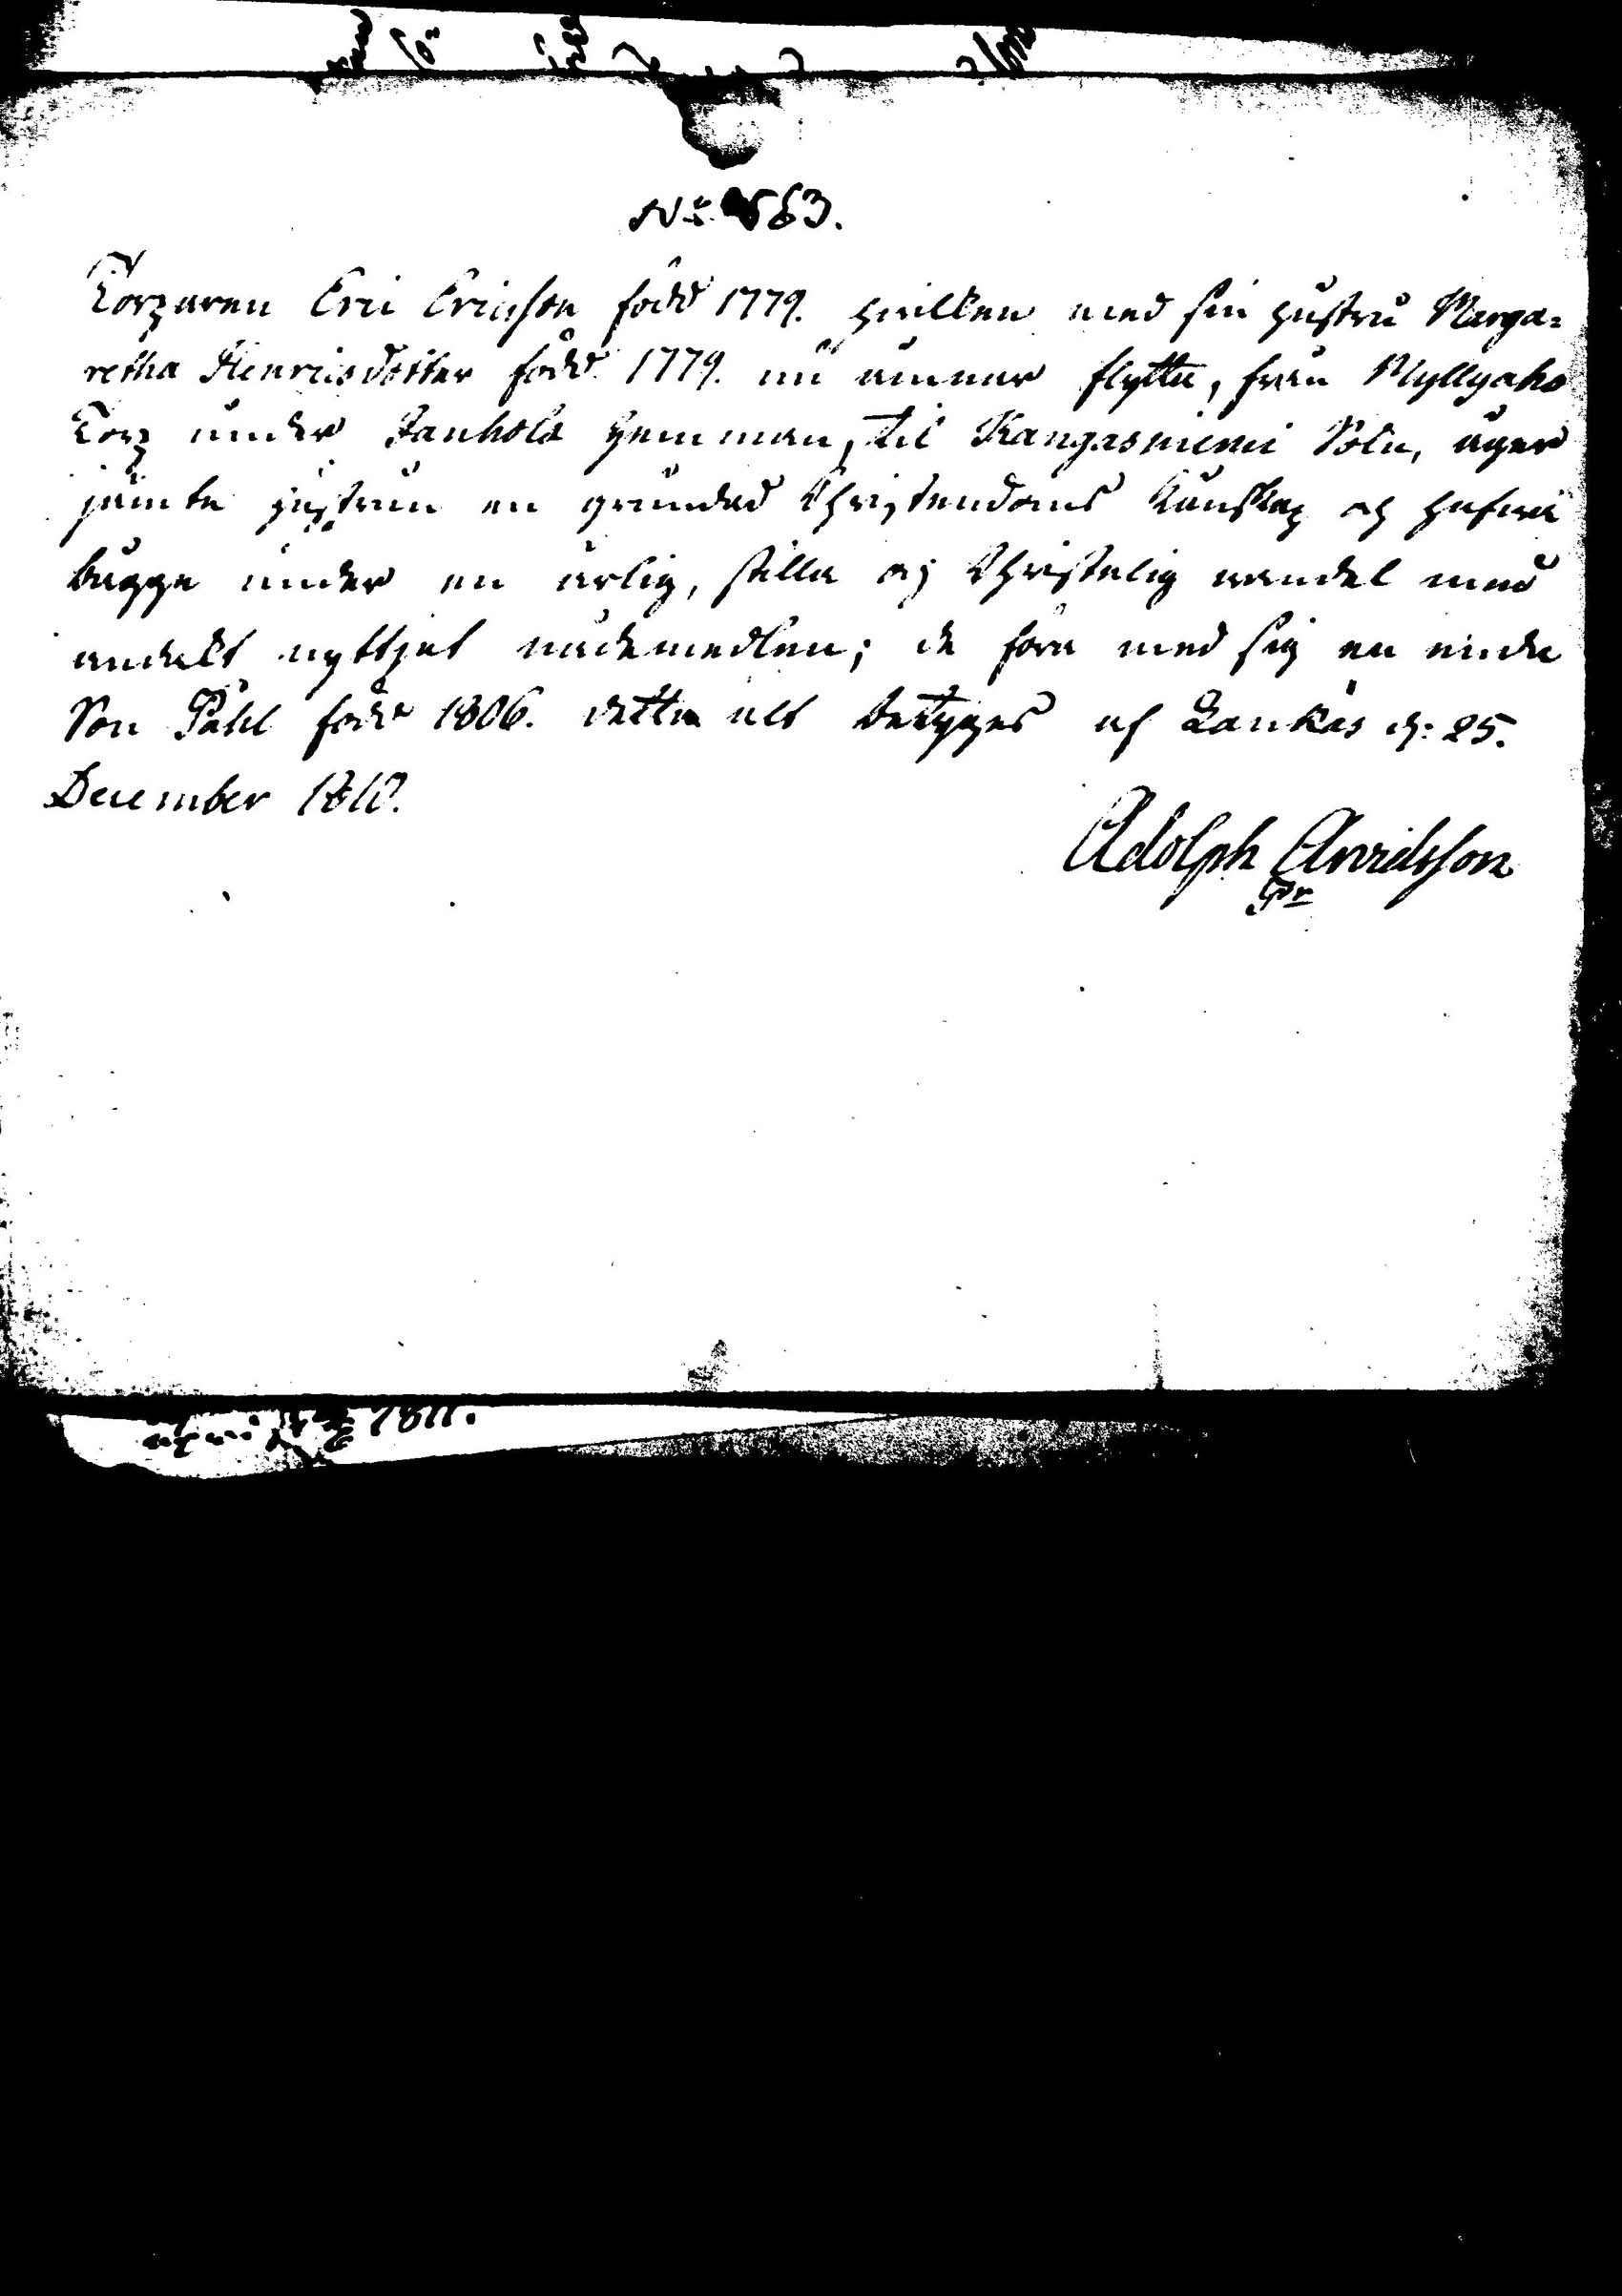 No 563.
Torparen Eric Ericsson född 1779. hvilken med sin hustru Marga=
retha Henricsdotter född 1779. nu ämnar flytta, från Myllyaho
Torp under Janhola hemman, til Kangasniemi Sokn, äger
jämte hustrun en grundad Christendoms kunskap och hafva
bägge under en ärlig, stilla och Christelig vandel med
andakt nyttjat nådemedlen; de föra med sig en
Son Påhl född 1806. detta alt betygas af Laukas d: 25.
December 1810.
Adolph Arvidsson
Pr
1811.